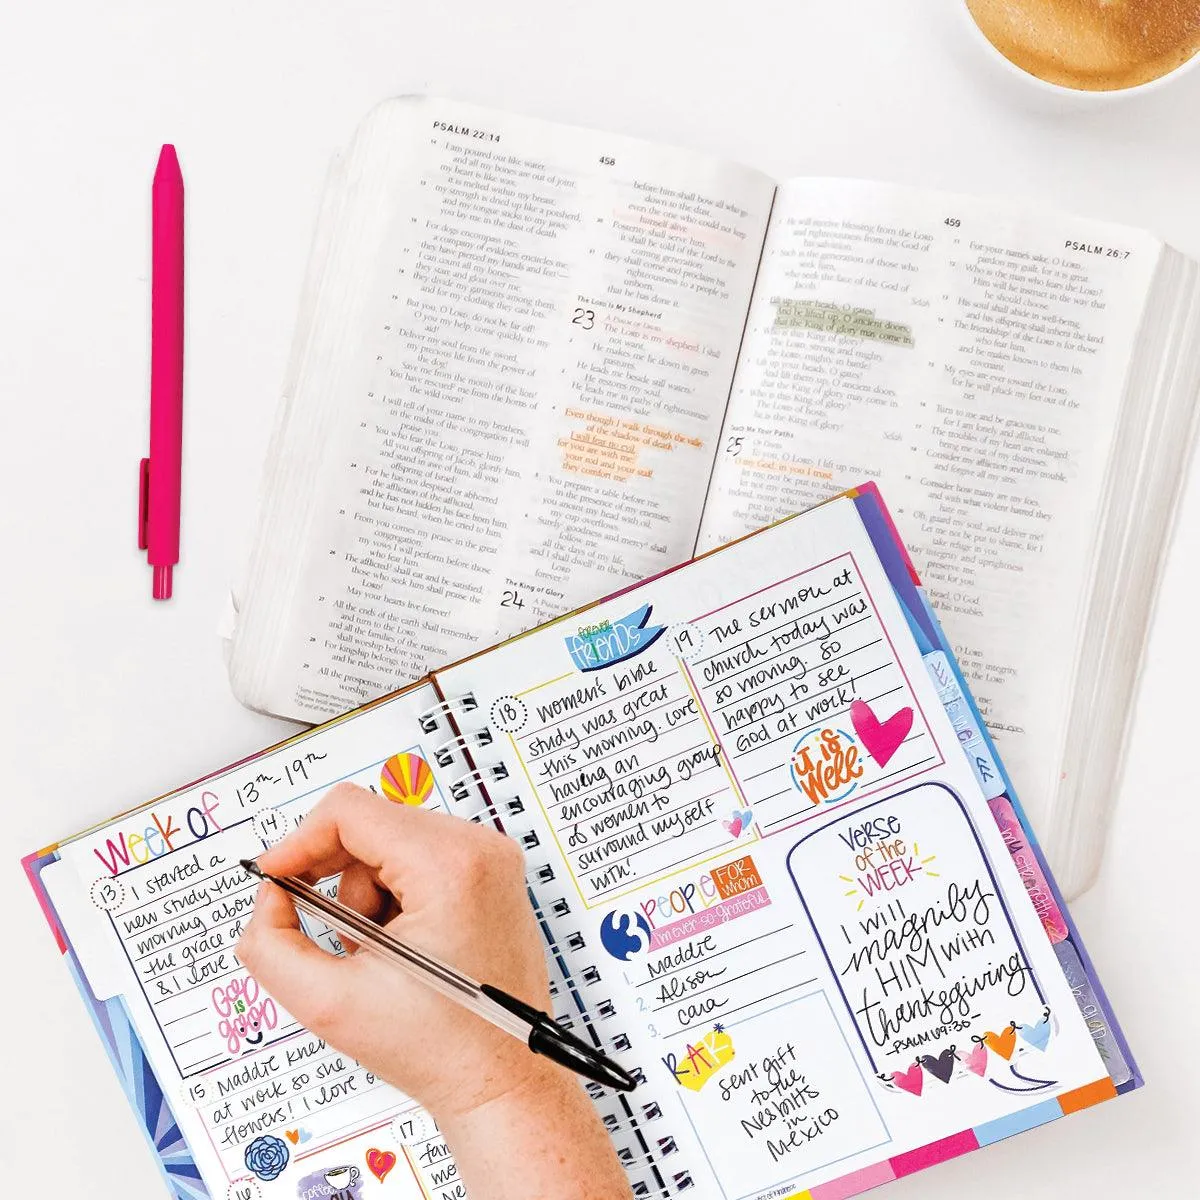 PSALM 22:14
458
14 I am poured out like water,
and all my bones are out of joint,
my heart is like wax,
it is melted within my breast;
15 my strength is dried up like a potsherd,
and my tongue sticks to my jaws;
you lay me in the dust of death
16 For dogs encompass me,
a company of evildoers encircles me
17 they have pierced my hands and feet—
I can count all my bones—
18 they stare and gloat over me,
they divide my garments among them,
and for my clothing they cast lots.
19 But you, O LORD, do not be far off!
O you my help, come quickly to my
aid!
20 Deliver my soul from the sword,
my precious life from the power of
the dog!
21 Save me from the mouth of the lion!
You have rescued me from the horns of
the wild oxen!
22 I will tell of your name to my brothers,
in the midst of the congregation I will
praise you:
23 You who fear the LORD, praise him!
All you offspring of Jacob, glorify him,
and stand in awe of him, all you
offspring of Israel!
24 For he has not despised or abhorred
the affliction of the afflicted,
and he has not hidden his face from him,
but has heard, when he cried to him.
25 From you comes my praise in the great
congregation;
my vows I will perform before those
who fear him.
26 The afflicted shall eat and be satisfied,
those who seek him shall praise the
LORD!
May your hearts live forever!
27 All the ends of the earth shall remember
and turn to the LORD,
and all the families of the nations
shall worship before you.
28 For kingship belongs to the
and he rules over the
29 All the prosperous of
worship
before him shall bow all who go
down to the dust,
even the one who could not keep
himself alive.
30 Posterity shall serve him;
it shall be told of the Lord to the
coming generation;
31 they shall come and proclaim his
righteousness to a people yet
unborn,
that he has done it.
The LORD Is My Shepherd
23 A PSALM OF DAVID
The LORD is my shepherd; I shall
not want.
2 He makes me lie down in green
pastures.
He leads me beside still waters.
3 He restores my soul.
He leads me in paths of righteousness
for his name's sake
4 Even though I walk through the valley
of the shadow of death,
I will fear no evil,
for you are with me;
your rod and your staff,
they comfort me.
5 You prepare a table before me
in the presence of my enemies;
you anoint my head with oil;
my cup overflows.
6 Surely goodness and mercy shall
follow me
all the days of my life,
and I shall dwell in the house
LORD
forever.
The King of Glory
24 A PSALM OF
459
PSALM 26:7
5 He will receive blessing from the LORD
and righteousness from the God of
his salvation.
6 Such is the generation of those who
seek him,
who seek the face of the God of
Jacob.
Selah
7 Lift up your heads, O gates!
And be lifted up, O ancient doors,
that the King of glory may come in.
8 Who is this King of glory?
The LORD, strong and mighty,
the LORD, mighty in battle!
9 Lift up your heads, O gates!
And lift them up, O ancient doors,
that the King of glory may come in.
10 Who is this King of glory?
The LORD of hosts,
he is the King of glory!
Selah
Teach Me Your Paths
25 OF DAVID
To you, O LORD, I lift up my soul.
2 O my God, in you I trust;
let me not be put to shame;
let not my enemies
3 Indeed, none who
put to
they shall
11 For your name's sake, O LORD,
pardon my guilt, for it is great.
12 Who is the man who fears the LORD?
Him will he instruct in the way that
he should choose.
13 His soul shall abide in well-being,
and his offspring shall inherit the land.
14 The friendship of the LORD is for those
who fear him,
and he makes known to them his
covenant.
15 My eyes are ever toward the LORD,
for he will pluck my feet out of the
net
16 Turn to me and be gracious to me,
for I am lonely and afflicted.
17 The troubles of my heart are enlarged;
bring me out of my distresses.
18 Consider my affliction and my trouble,
and forgive all my sins.
19 Consider how many are my foes,
and with what violent hatred they
hate me.
20 Oh, guard my soul, and deliver me!
Let me not be put to shame, for I
take refuge in you.
21 May integrity and uprightness
preserve me,
for I wait for you.
Israel, O God,
his troubles.
O LORD
in my integrity,
week of 13th-19th
13 I started a
new study this
morning about
the grace of
& I love
GOD
is
good
14
15 Maddie knew
at work so she
flowers! I love
16
coffee
17
forever
friends
18 women's bible
study was great
this morning. Love
having an
encouraging group
of women to
surround myself
with!
19 The sermon at
church today was
so moving. So
happy to see
God at work!
it is
well
3 PEOPLE FOR
whom
I'm ever-so-grateful
1. Maddie
2. Alison
3. Cara
RAK
Sent gift
to the
Nesbitts
in
Mexico
verse
of the
WEEK
I will
magnify
HIM with
thanksgiving
-PSALM 69:30-
it is well
my strength
be glad